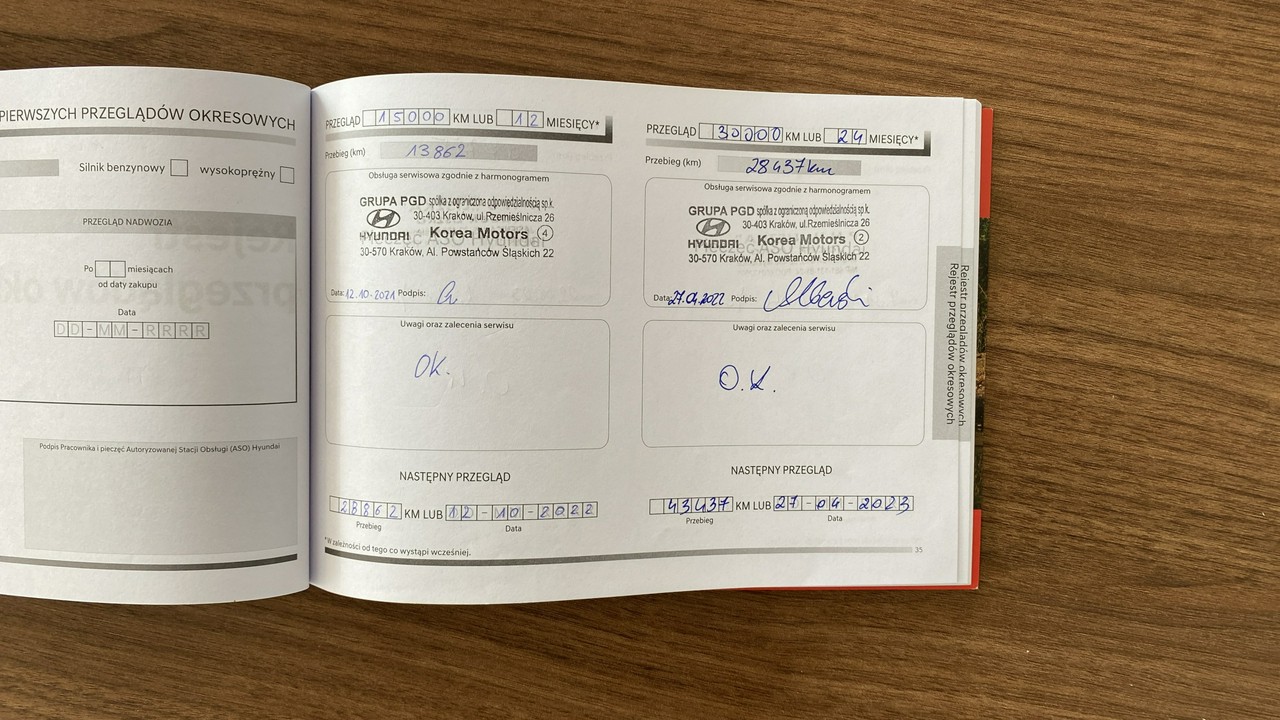 PIERWSZYCH PRZEGLĄDÓW OKRESOWYCH
Silnik benzynowy wysokoprężny
PRZEGLĄD NADWOZIA
Po miesiącach
od daty zakupu
Data
DD-MM-RRRR
Podpis Pracownika i pieczęć Autoryzowanej Stacji Obsługi (ASO) Hyundai
PRZEGLĄD 15000 KM LUB 12 MIESIĘCY*
Przebieg (km) 13862
Obsługa serwisowa zgodnie z harmonogramem
GRUPA PGD spółka z ograniczoną odpowiedzialnością sp.k.
30-403 Kraków, ul.Rzemieślnicza 26
HYUNDAI Korea Motors 4
30-570 Kraków, Al. Powstańców Śląskich 22
Data: 12.10-2021 Podpis:
Uwagi oraz zalecenia serwisu
OK.
NASTĘPNY PRZEGLĄD
28862 KM LUB 12-10-2022
Przebieg Data
* W zależności od tego co wystąpi wcześniej.
PRZEGLĄD 30000 KM LUB 24 MIESIĘCY*
Przebieg (km) 28437km
Obsługa serwisowa zgodnie z harmonogramem
GRUPA PGD spółka z ograniczoną odpowiedzialnością sp.k.
30-403 Kraków, ul.Rzemieślnicza 26
HYUNDAI Korea Motors 2
30-570 Kraków, Al. Powstańców Śląskich 22
Data: 27.04.2022 Podpis:
Uwagi oraz zalecenia serwisu
O.K.
NASTĘPNY PRZEGLĄD
43437 KM LUB 27-04-2023
Przebieg Data
35
Rejestr przeglądów okresowych
Rejestr przeglądów okresowych